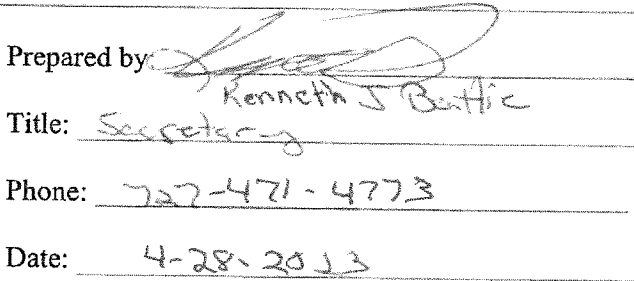 Prepared by
Kenneth J Beattie
Title: Secretary
Phone: 727-471-4773
Date: 4-28-2013